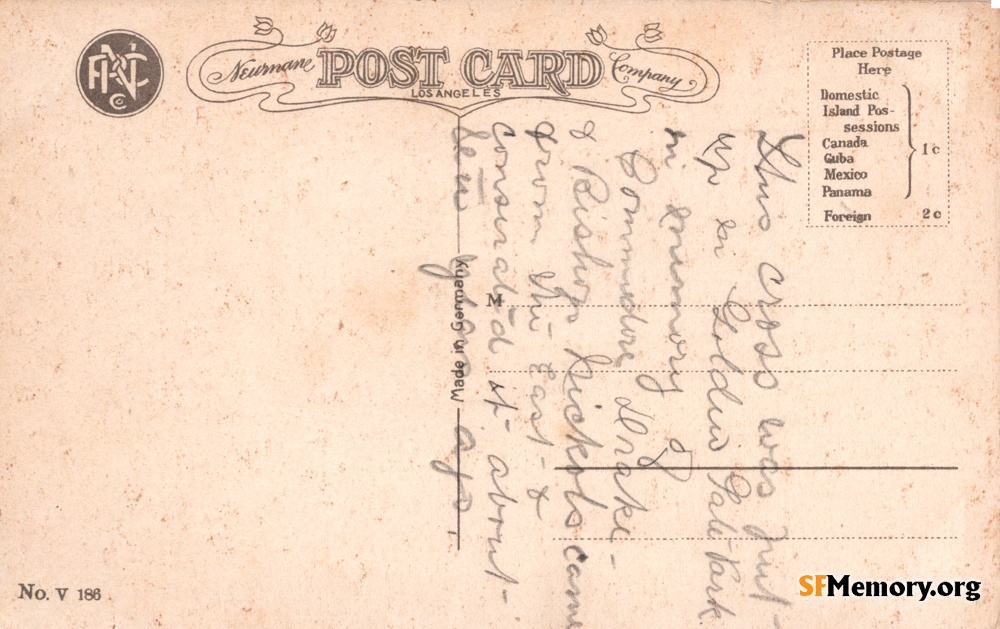 Newmane POST CARD Company
LOS ANGELES
Place Postage
Here
Domestic
Island Pos-
sessions
Canada
Cuba
Mexico
Panama
1c
Foreign 2c
M
Made in Germany
This cross was put
up in Golden Gate Park
in memory of
Commodore Drake -
& Bishop Nickols came
from the East &
consecrated it about
ten years ago.
No. V 186
SFMemory.org